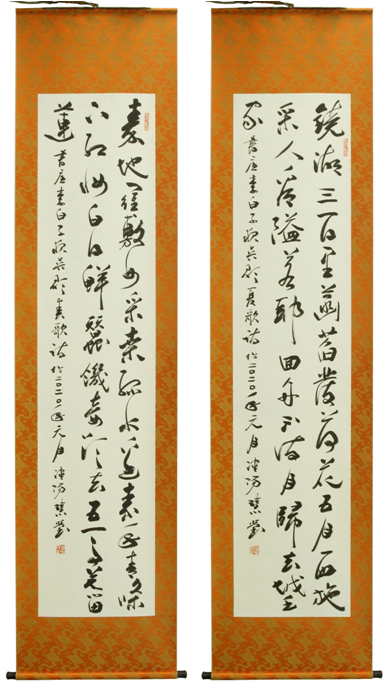 鏡湖三百里菡萏發荷花五月西施
采人看隘若耶回舟不待月歸去越王
家 書唐李白子夜吳歌夏歌詩於二〇二〇年元月
秦地羅敷女采桑綠水邊素手青條
上紅妝白日鮮蠶饑妾欲去五馬莫留
連 書唐李白子夜吳歌春歌詩於二〇二〇年元月